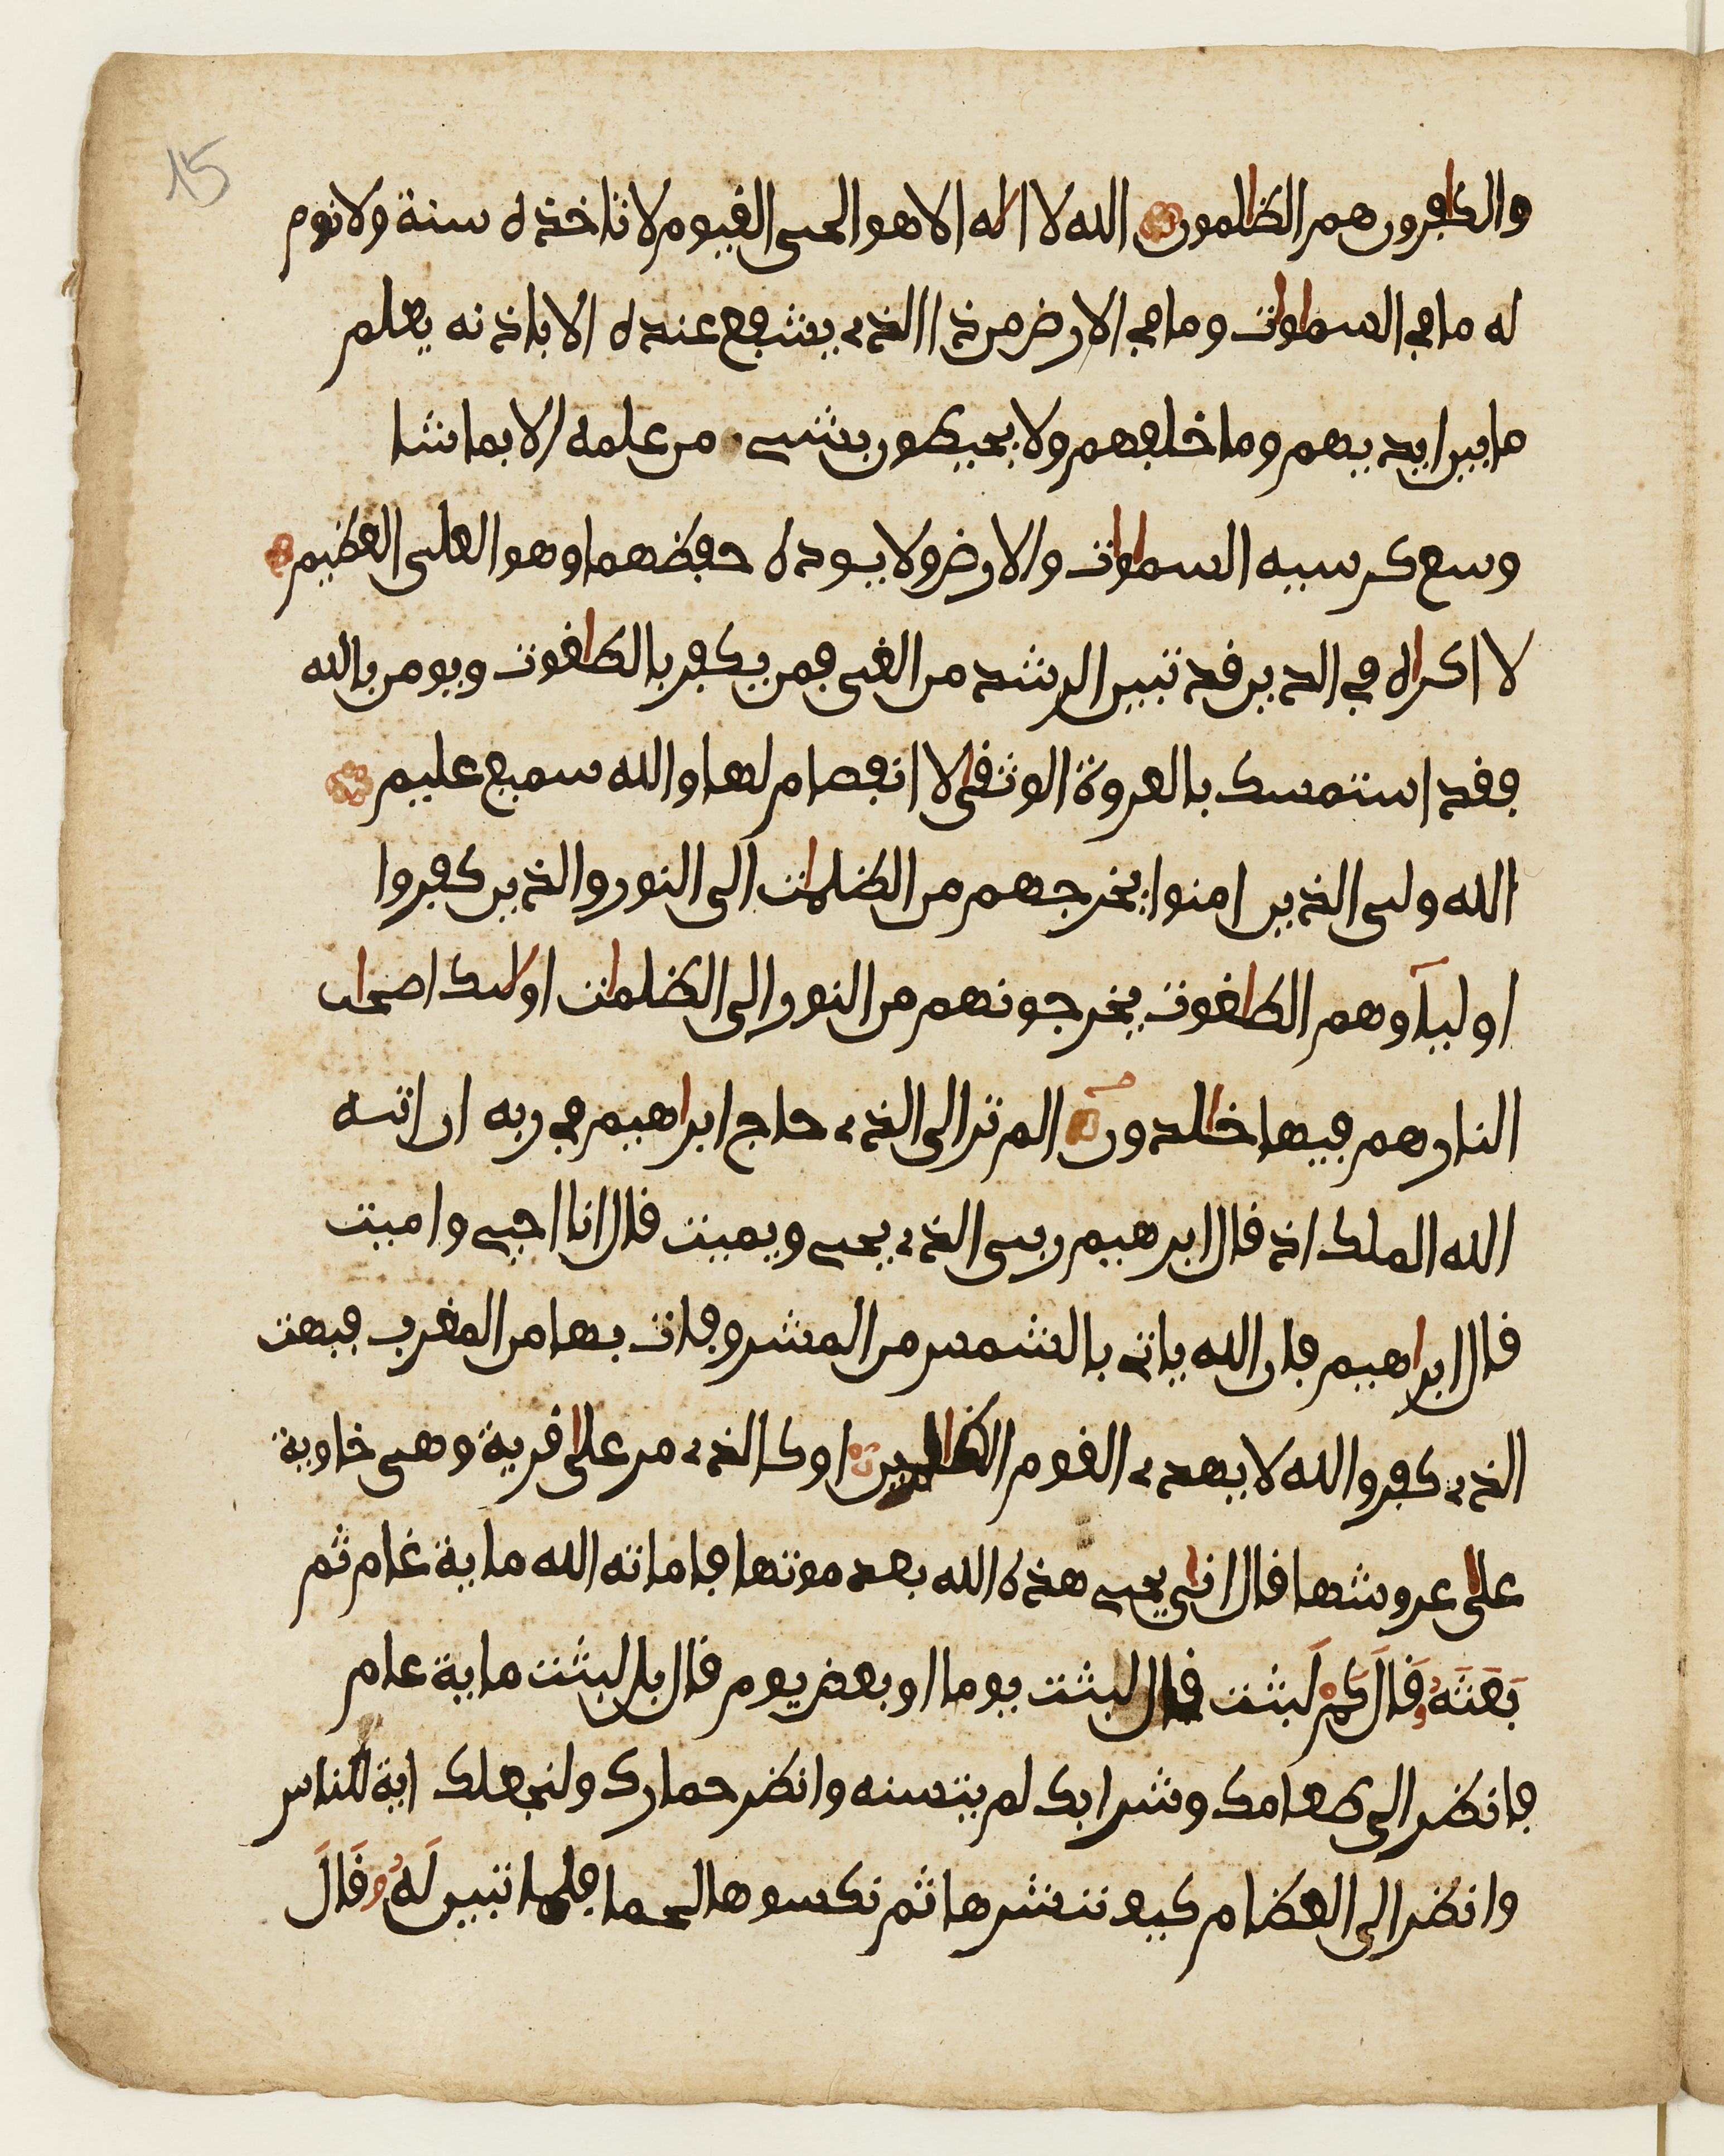 15
والكافرون هم الظالمون الله لا اله الا هو الحي القيوم لا تاخذه سنة ولا نوم
له ما في السماوات وما في الارض من ذا الذي يشفع عنده الا باذنه يعلم
ما بين ايديهم وما خلفهم ولا يحيطون بشيء من علمه الا بما شا
وسع كرسيه السماوات والارض ولا يوده حفظهما وهو العلي العظيم
لا اكراه في الدين قد تبين الرشد من الغي فمن يكفر بالطاغوت ويومن بالله
فقد استمسك بالعروة الوثقى لا انفصام لها والله سميع عليم
الله ولي الذين امنوا يخرجهم من الظلمات الى النور والذين كفروا
اوليآوهم الطاغوت يخرجونهم من النور الى الظلمات اولئك اصحاب
النار هم فيها خالدون الم تر الى الذي حاج ابراهيم في ربه ان اتيه
الله الملك اذ قال ابرهيم ربي الذي يحي ويميت قال انا احيي واميت
قال ابراهيم فان الله ياتي بالشمس من المشرق فات بها من المغرب فبهت
الذي كفر والله لا يهدي القوم الظالمين او كالذي مر على قرية وهي خاوية
على عروشها قال انى يحي هذه الله بعد موتها فاماته الله ماية عام ثم
بَعَثَهُ وقَالَ كَمْ لَبثت قال لبثت يوما او بعض يوم قال بل لبثت ماية عام
فانظر الى طعامك وشرابك لم يتسنه وانظر حمارك ولنجعلك اية للناس
وانظر الى العظام كيف ننشرها ثم نكسوها لحما فلما تبين لَهُ و قَالَ